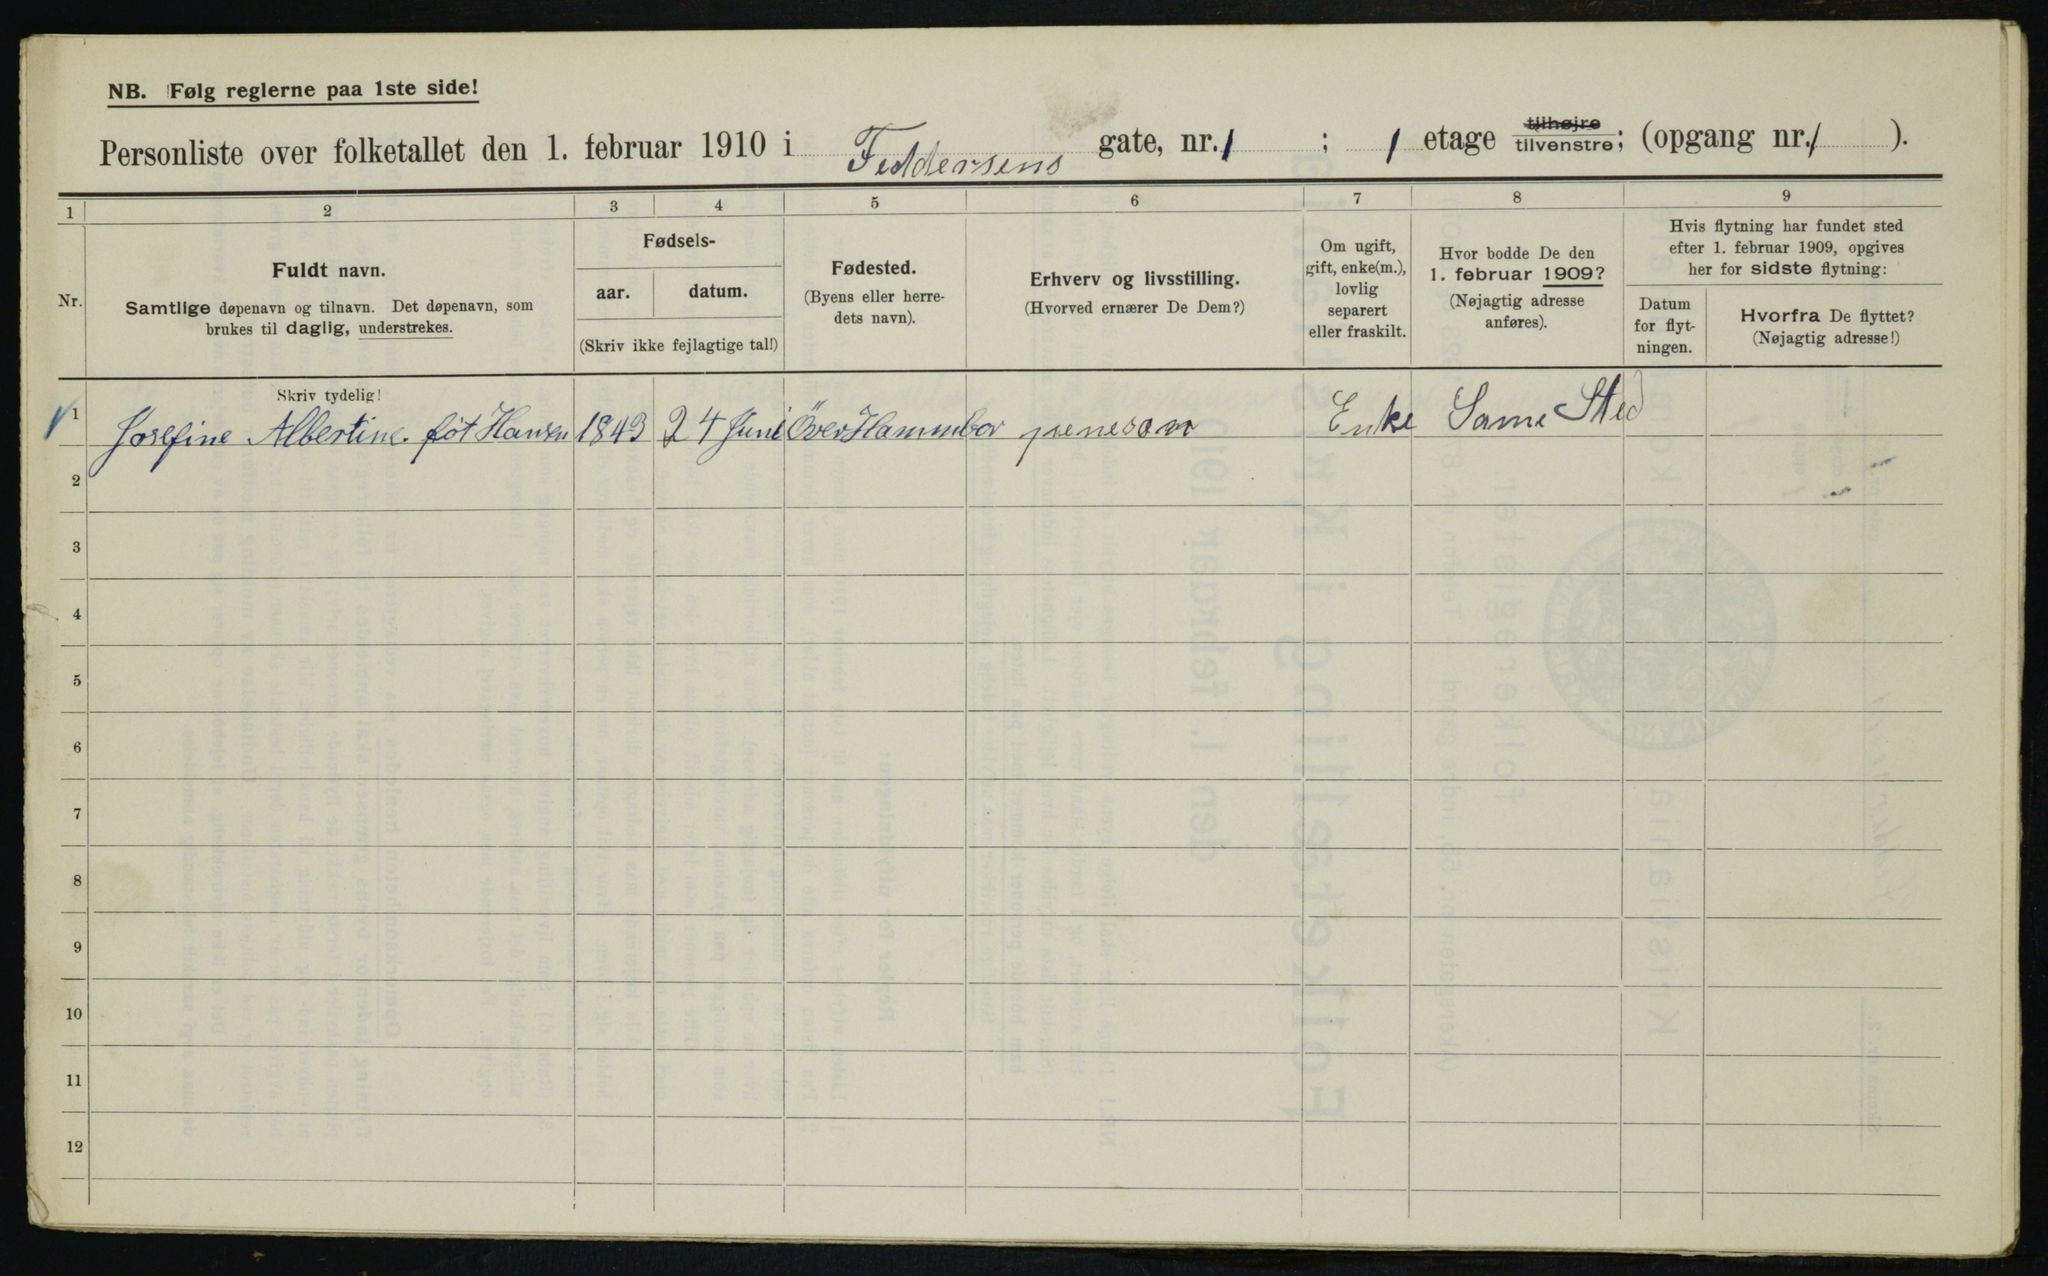 NB. Følg reglerne paa 1ste side!
Personliste over folketallet den 1. februar 1910 i Feddersens gate, nr. 1 ; 1 etage tilhøjre tilvenstre; (opgang nr. 1 ).
1 2 3 4 5 6 7 8 9
Nr.
Fuldt navn.
Samtlige døpenavn og tilnavn. Det døpenavn, som
brukes til daglig, understrekes.
Fødsels-
aar. datum.
(Skriv ikke fejlagtige tal!)
Fødested.
(Byens eller herre-
dets navn).
Erhverv og livsstilling.
(Hvorved ernærer De Dem?)
Om ugift,
gift, enke(m.),
lovlig
separert
eller fraskilt.
Hvor bodde De den
1. februar 1909?
(Nøjagtig adresse
anføres).
Hvis flytning har fundet sted
efter 1. februar 1909, opgives
her for sidste flytning:
Datum
for flyt-
ningen.
Hvorfra De flyttet?
(Nøjagtig adresse!)
Skriv tydelig!
1 Josefine Albertine føt Hansen 1843 24 Juni Över Hammbor Enke Same Sted
2
3
4
5
6
7
8
9
10
11
12